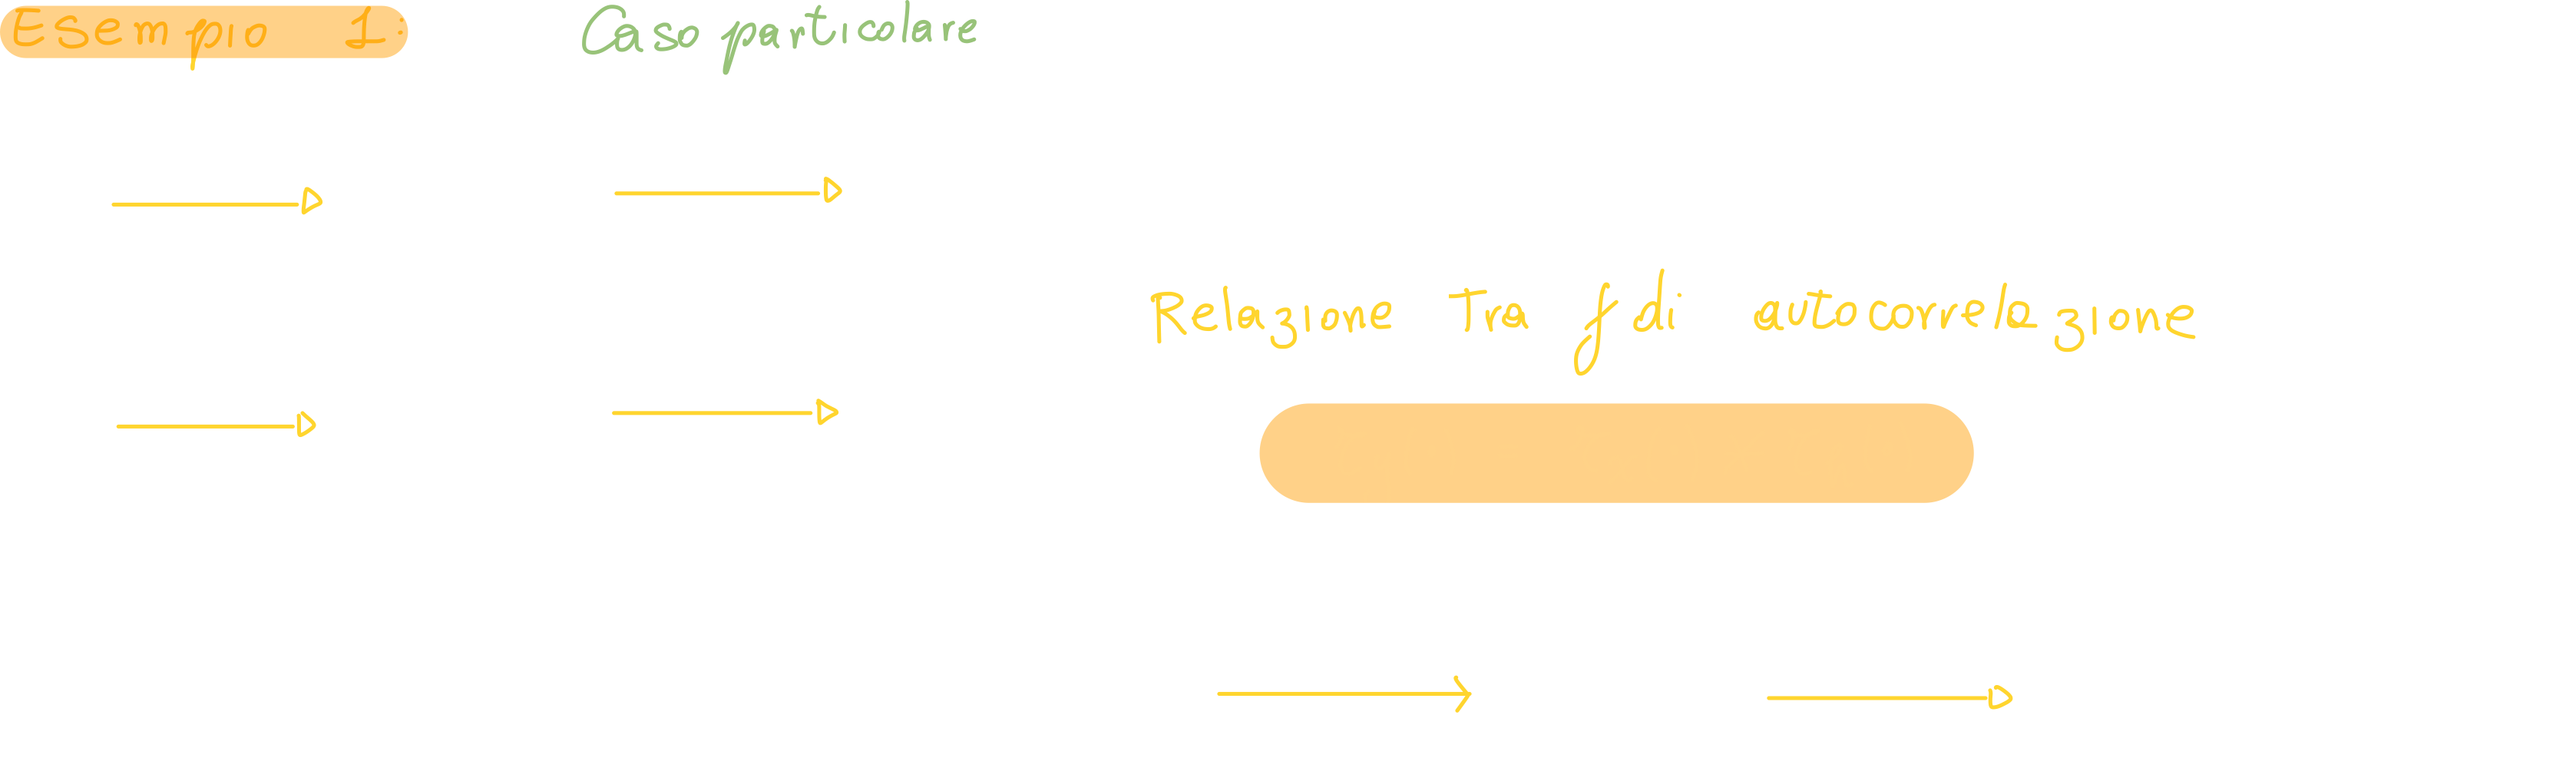 Esempio 1:
Caso particolare
Relazione tra f di autocorrelazione